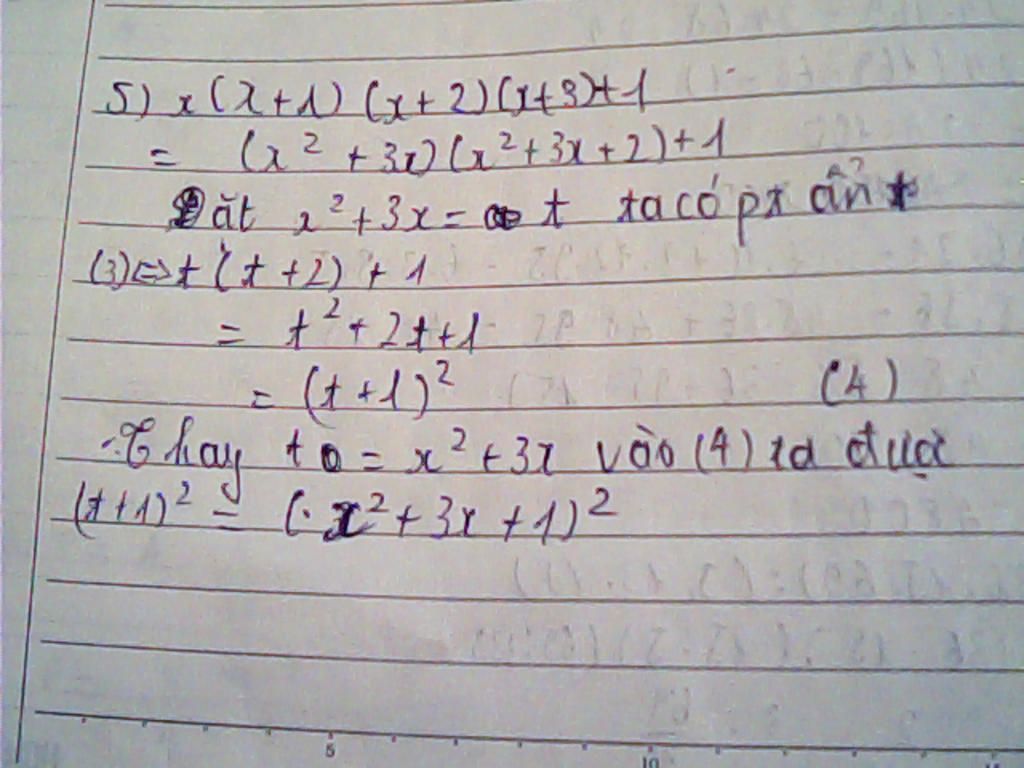 5) x(x+1)(x+2)(x+3)+1
= (x² + 3x)(x²+3x+2)+1
Đặt x²+3x = t ta có pt ẩn t
(3)⇔ t(t+2) + 1
= t² + 2t+1
= (t+1)² (4)
Thay t = x²+3x vào (4) ta được
(t+1)² = (x²+3x+1)²
5 10